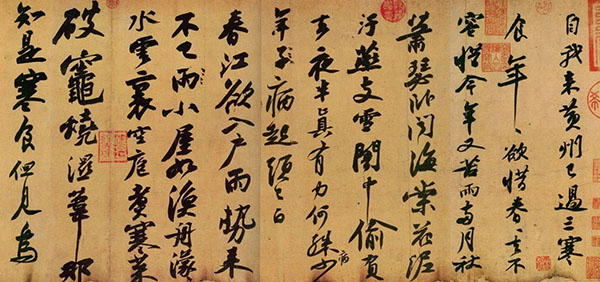 自我來黄州已過三寒
食年〻欲惜春〻去不
容惜今年又苦雨兩月秋
蕭瑟卧聞海棠花泥
汙燕支雪闇中偷負
去夜半真有力何殊少
病
年子病起頭已白
春江欲入户雨勢來
不已雨小屋如漁舟濛〻
水雲裏空庖煮寒菜
破竈燒濕葦那
知是寒食但見烏